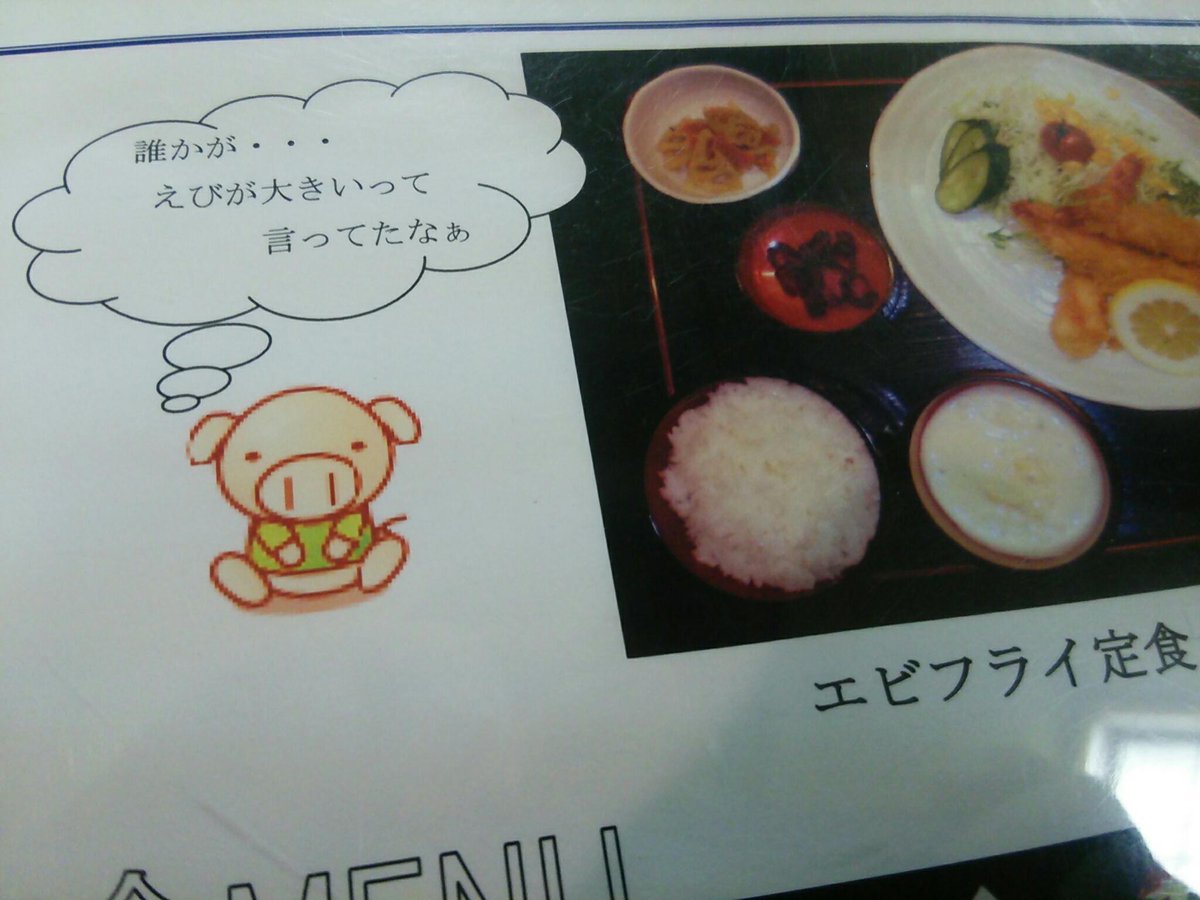 誰かが・・・
えびが大きいって
言ってたなぁ
エビフライ定食
MENU